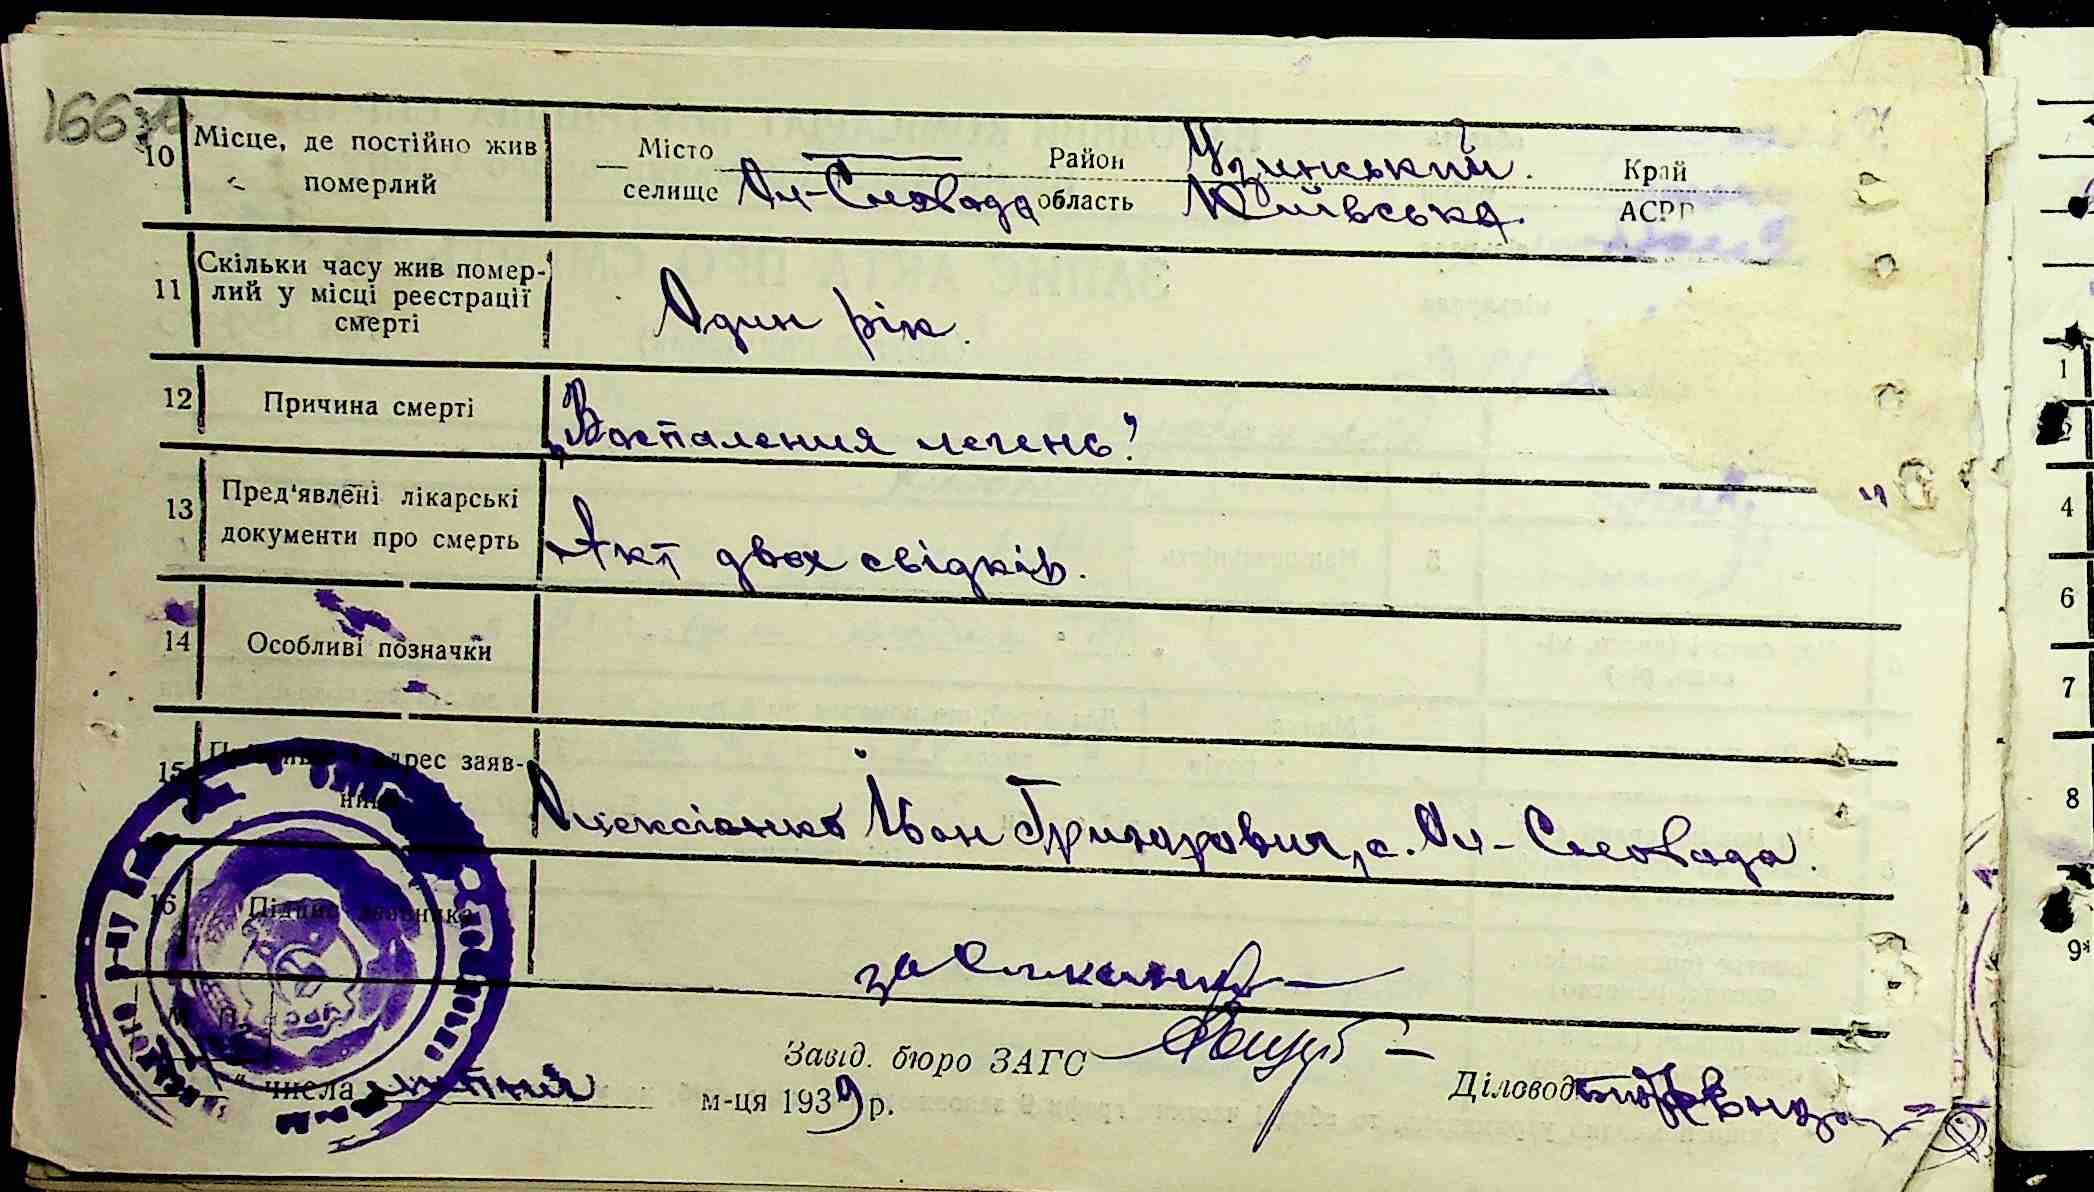 166 зв
10 Місце, де постійно жив Місто — Район Узинський. Край
померлий селище Ол-Слобода область Київська. АСРР
11 Скільки часу жив помер-
лий у місці реєстрації Один рік.
смерті
12 Причина смерті „Воспаления легень"
13 Пред'явлені лікарські
документи про смерть Акт двох свідків.
14 Особливі позначки
15 адрес заяв-
ника Олексієнко Іван Григорович, с. Ол-Слобода.
16 Підпис заявника
за
М. П.
Завід. бюро ЗАГС
" числа липня м-ця 1939 р. Діловод
1
2
4
6
7
8
9*